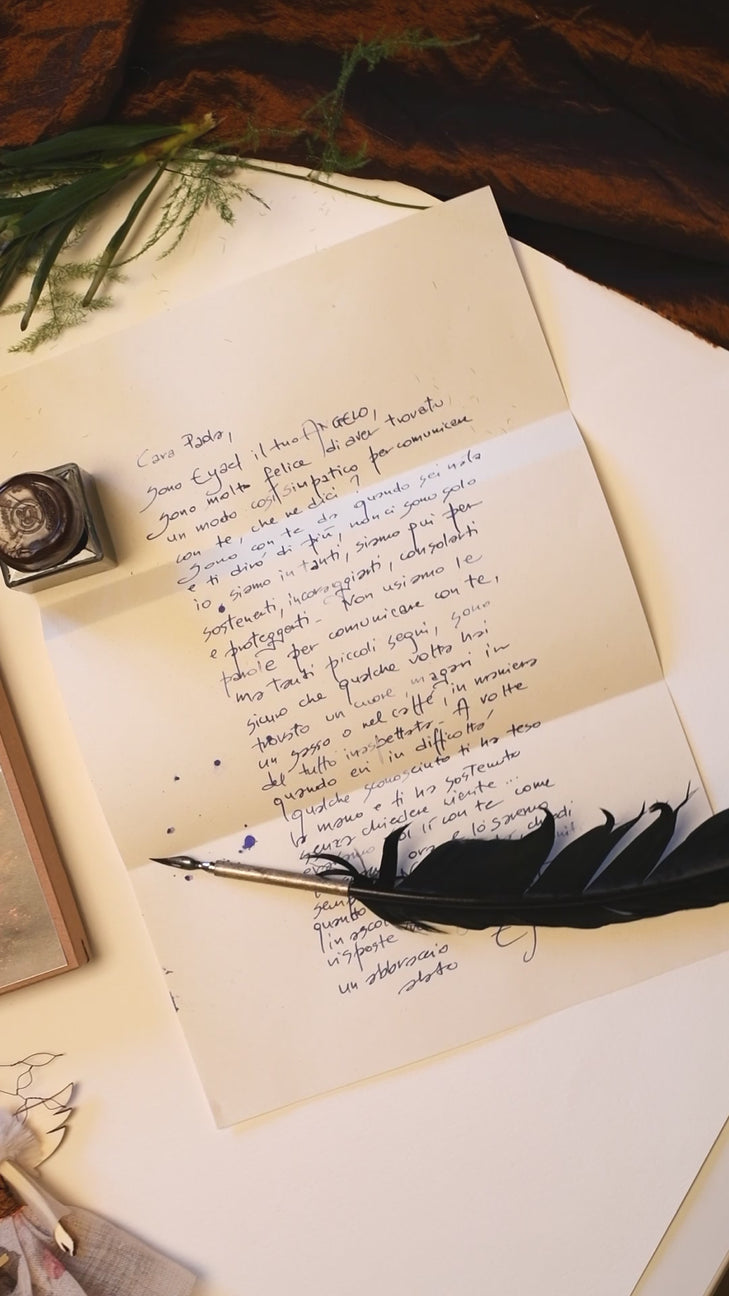 Cara Paola,
sono Eyael il tuo ANGELO,
sono molto felice di aver trovato
un modo così simpatico per comunicare
con te, che ne dici?
Sono con te da quando sei nata
e ti dirò di più, non ci sono solo
io siamo in tanti, siamo qui per
sostenerti, incoraggiarti, consolarti
e proteggerti - Non usiamo le
parole per comunicare con te,
ma tanti piccoli segni, sono
sicuro che qualche volta hai
trovato un cuore, magari in
un sasso o nel caffè, in maniera
del tutto inaspettata - A volte
quando eri in difficoltà,
qualche sconosciuto ti ha teso
la mano e ti ha sostenuto
senza chiedere niente ...
lì con te come
ora e lo saremo
chiedi
quando
in
risposte
un abbraccio
alato